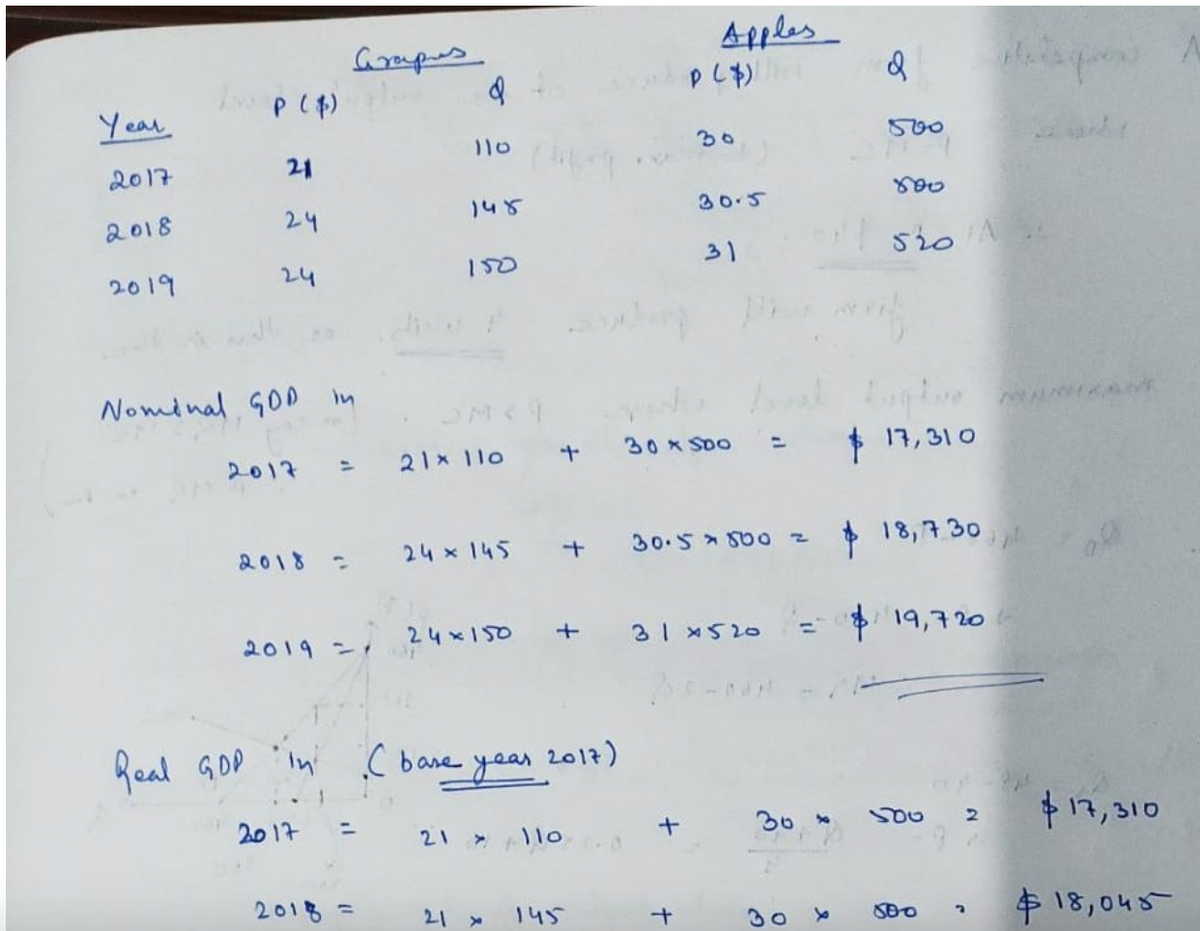 Grapes Apples
Year P ($) Q P ($) Q
2017 21 110 30 500
2018 24 145 30.5 500
2019 24 150 31 520
Nominal GDP in
2017 = 21 × 110 + 30 × 500 = $ 17,310
2018 = 24 × 145 + 30.5 × 500 = $ 18,730
2019 = 24 × 150 + 31 × 520 = $ 19,720
Real GDP in (base year 2017)
2017 = 21 × 110 + 30 × 500 = $ 17,310
2018 = 21 × 145 + 30 × 500 = $ 18,045